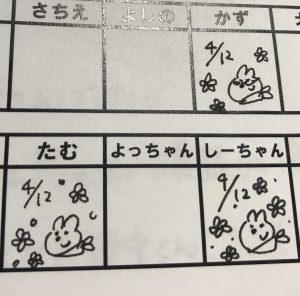 さちえ よしの かず
4/12
たむ よっちゃん しーちゃん
4/12 4/12